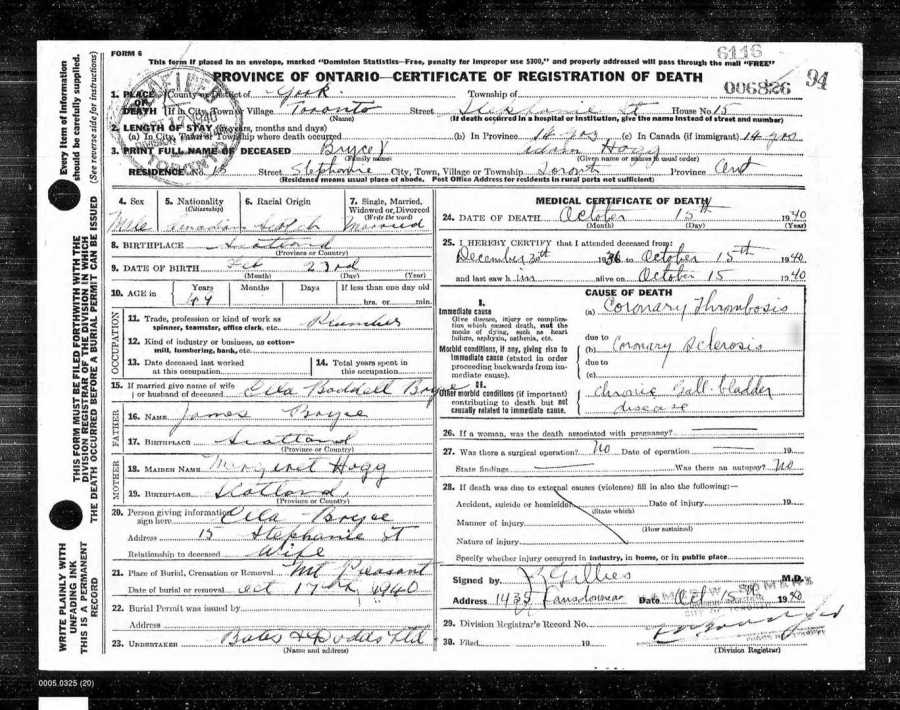 FORM 6
6116
This form if placed in an envelope, marked "Dominion Statistics—Free, penalty for improper use $300," and properly addressed will pass through the mail "FREE"
PROVINCE OF ONTARIO—CERTIFICATE OF REGISTRATION OF DEATH
94
1. PLACE OF DEATH County or District of York Township of
(If in City, Town or Village Toronto Street Stephanie St House No. 15
(Name) (If death occurred in a hospital or institution, give the name instead of street and number)
2. LENGTH OF STAY (in years, months and days)
(a) In City, Town or Township where death occurred (b) In Province 14 yrs (c) In Canada (if immigrant) 14 yrs
3. PRINT FULL NAME OF DECEASED Bryce Hogg
(Family name) (Given name or names in usual order)
RESIDENCE No. 15 Street Stephanie City, Town, Village or Township Toronto Province Ont
(Residence means usual place of abode. Post Office Address for residents in rural parts not sufficient)
4. Sex 5. Nationality (Citizenship) 6. Racial Origin 7. Single, Married, Widowed or Divorced (Write the word)
Male Canadian Scotch Married
8. BIRTHPLACE Scotland
(Province or Country)
9. DATE OF BIRTH Feb 23rd
(Month) (Day) (Year)
10. AGE in Years Months Days If less than one day old
hrs. or min.
OCCUPATION
11. Trade, profession or kind of work as spinner, teamster, office clerk, etc. Plumber
12. Kind of industry or business, as cotton-mill, lumbering, bank, etc.
13. Date deceased last worked at this occupation
14. Total years spent in this occupation
15. If married give name of wife or husband of deceased Bryce
FATHER
16. NAME James Bryce
17. BIRTHPLACE Scotland
(Province or Country)
MOTHER
18. MAIDEN NAME Margaret Hogg
19. BIRTHPLACE Scotland
(Province or Country)
20. Person giving information sign here Bryce
Address 15 Stephanie St
Relationship to deceased Wife
21. Place of Burial, Cremation or Removal Mt Pleasant
Date of burial or removal Oct 17th 1940
22. Burial Permit was issued by
Address
23. UNDERTAKER Bates & Dodds Ltd
(Name and address)
MEDICAL CERTIFICATE OF DEATH
24. DATE OF DEATH October 15th 1940
(Month) (Day) (Year)
25. I HEREBY CERTIFY that I attended deceased from:
December 30th 1936 to October 15th 1940
and last saw him alive on October 15 1940
CAUSE OF DEATH
I.
Immediate cause
Give disease, injury or complication which caused death, not the mode of dying, such as heart failure, asphyxia, asthenia, etc.
(a) Coronary Thrombosis
due to
Morbid conditions, if any, giving rise to immediate cause (stated in order proceeding backwards from immediate cause).
(b) Coronary Sclerosis
due to
(c)
II.
Other morbid conditions (if important) contributing to death but not causally related to immediate cause.
chronic Gall-bladder
disease
26. If a woman, was the death associated with pregnancy?
27. Was there a surgical operation? No Date of operation 19
State findings Was there an autopsy? No
28. If death was due to external causes (violence) fill in also the following:—
Accident, suicide or homicide Date of injury 19
(State which)
Manner of injury
(How sustained)
Nature of injury
Specify whether injury occurred in industry, in home, or in public place
Signed by Gillies M.D.
Address Date Oct 15 1940
29. Division Registrar's Record No.
30. Filed 19
(Division Registrar)
Every item of information should be carefully supplied.
(See reverse side for instructions)
THIS FORM MUST BE FILED FORTHWITH WITH THE DIVISION REGISTRAR OF THE DIVISION IN WHICH THE DEATH OCCURRED BEFORE A BURIAL PERMIT CAN BE ISSUED
WRITE PLAINLY WITH UNFADING INK
THIS IS A PERMANENT RECORD
0005.0325 (20)